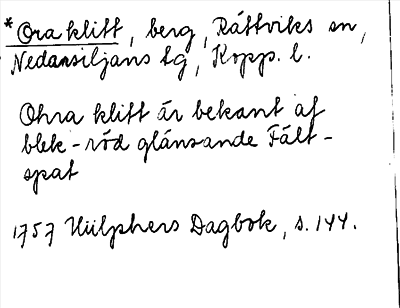 *Ora klitt, berg, Rättviks sn,
Nedansiljans tg, Kopp. l.
Ohra klitt är bekant af
blek-röd glänsande Fält-
spat
1757 Hülphers Dagbok, s. 144.